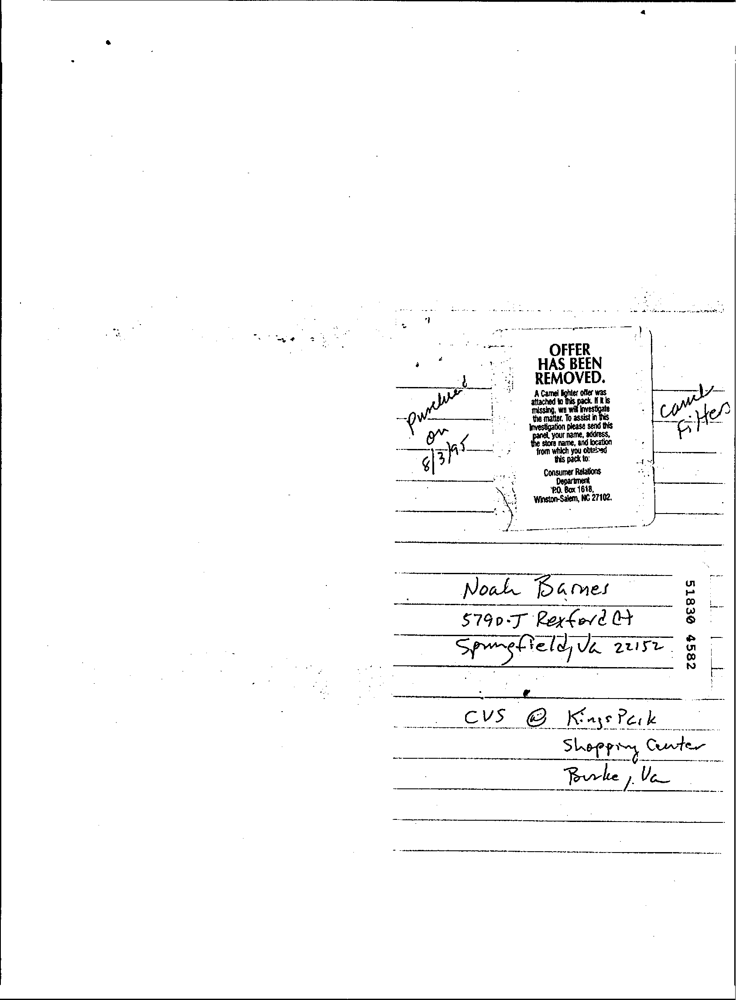 OFFER
HAS BEEN
REMOVED.
A Camel lighter offer was
attached to this pack. If it is
missing, we will investigate
the matter. To assist in this
investigation please send this
panel, your name, address,
the store name, and location
from which you obtained
this pack to:
Consumer Relations
Department
P.O. Box 1618,
Winston-Salem, NC 27102.
Purchased
on
8/3/95
Camel
Filters
Noah Barnes
5790-J Rexford Ct
Springfield, Va 22152
51830 4582
CVS @ Kings Park
Shopping Center
Burke, Va